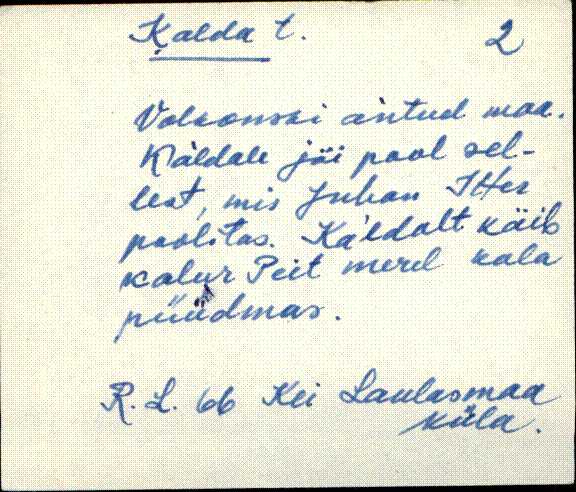 Kalda t. 2
Volkonski antud maa.
Kaldale jäi pool sel-
lest, mis Juhan Itter
poolitas. Kaldalt käib
kalur Peit merel kala
püüdmas.
R. L. 66 Kei Laulasmaa
küla.